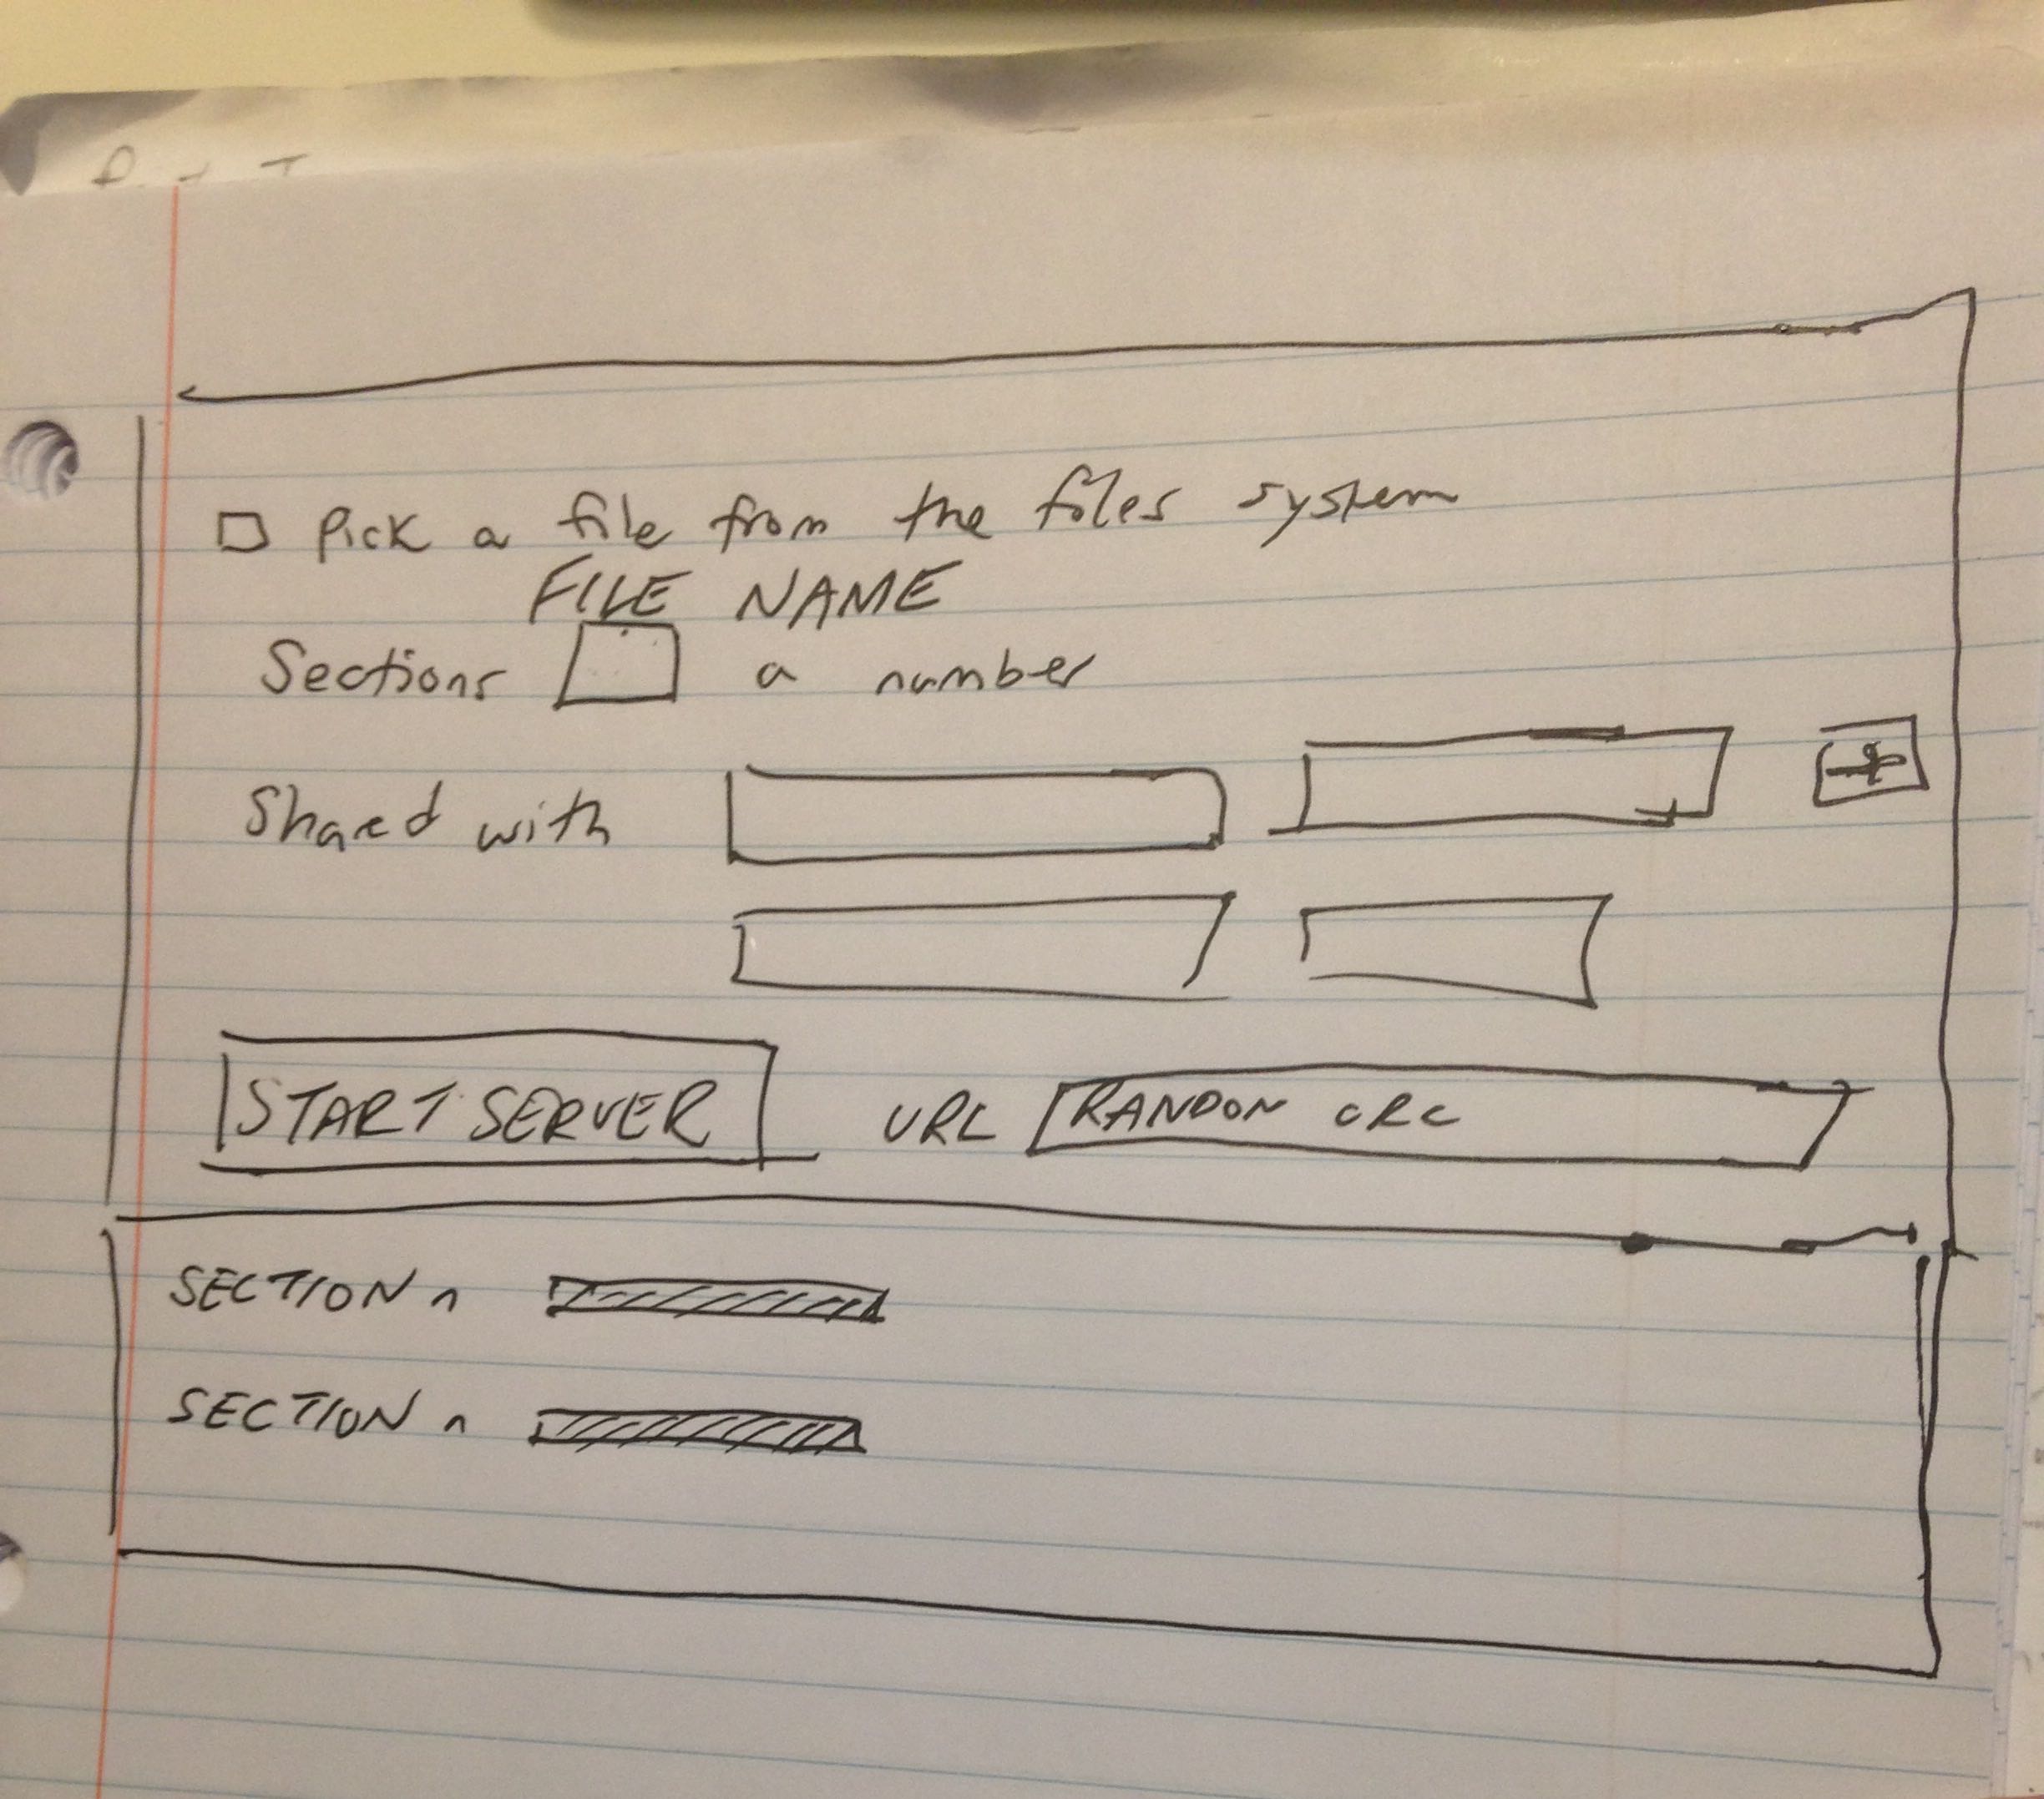 Pick a file from the files system
FILE NAME
Sections a number
Shared with +
START SERVER URL RANDON CRC
SECTION n
SECTION n